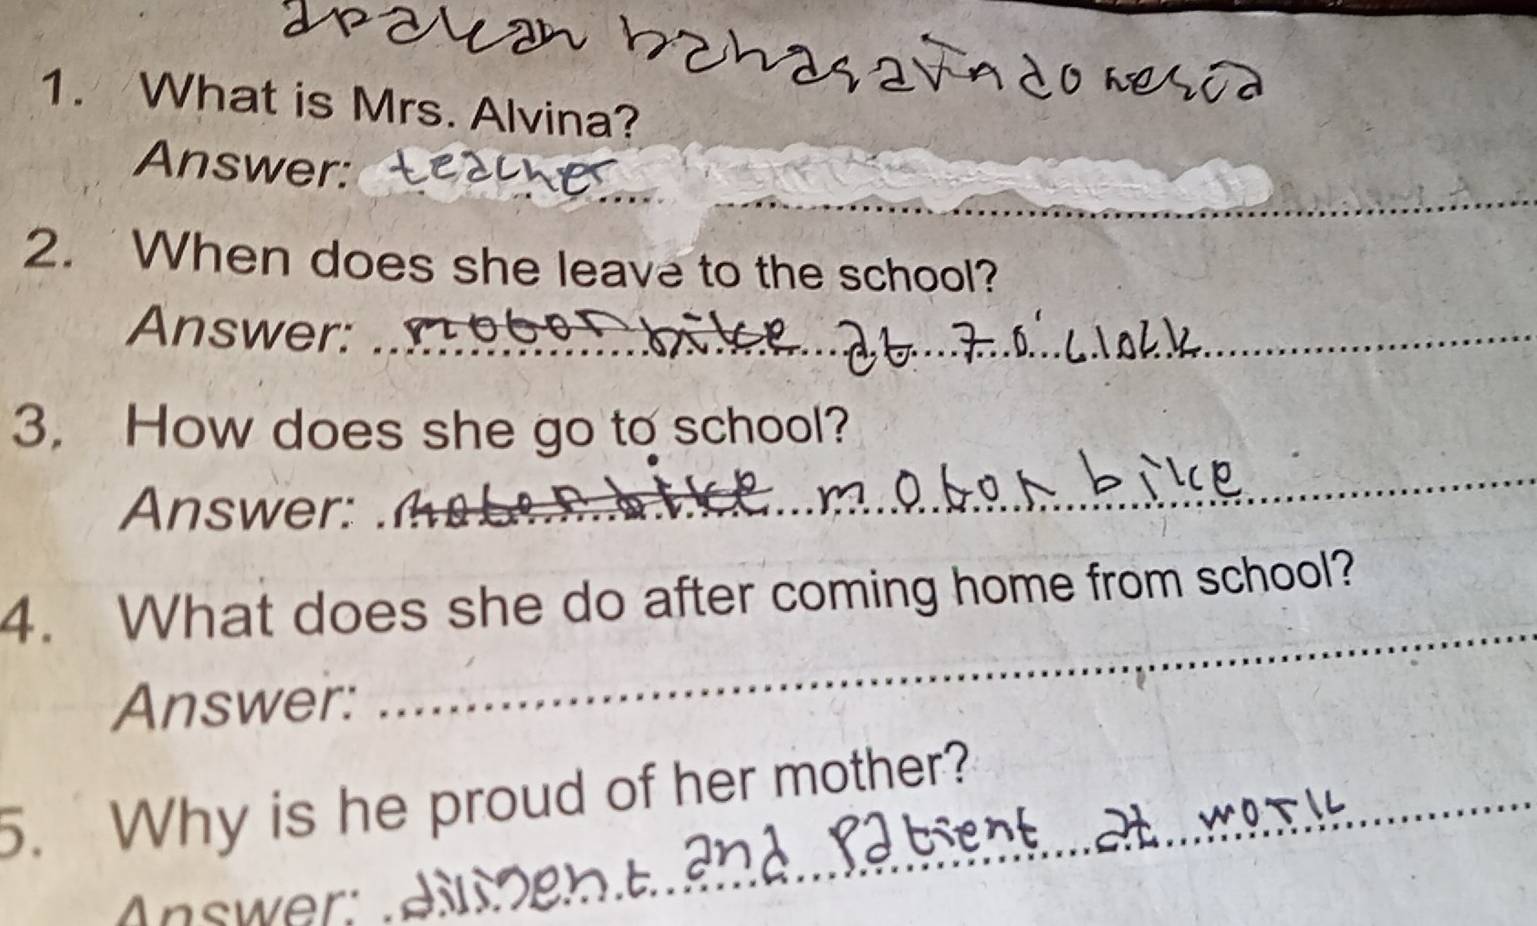 apakan bahasa indonesia
1. What is Mrs. Alvina?
Answer: teacher
2. When does she leave to the school?
Answer: motor bike at 7 o'clock
3. How does she go to school?
Answer: motor bike motor bike
4. What does she do after coming home from school?
Answer:
5. Why is he proud of her mother?
Answer: diligent and patient at work